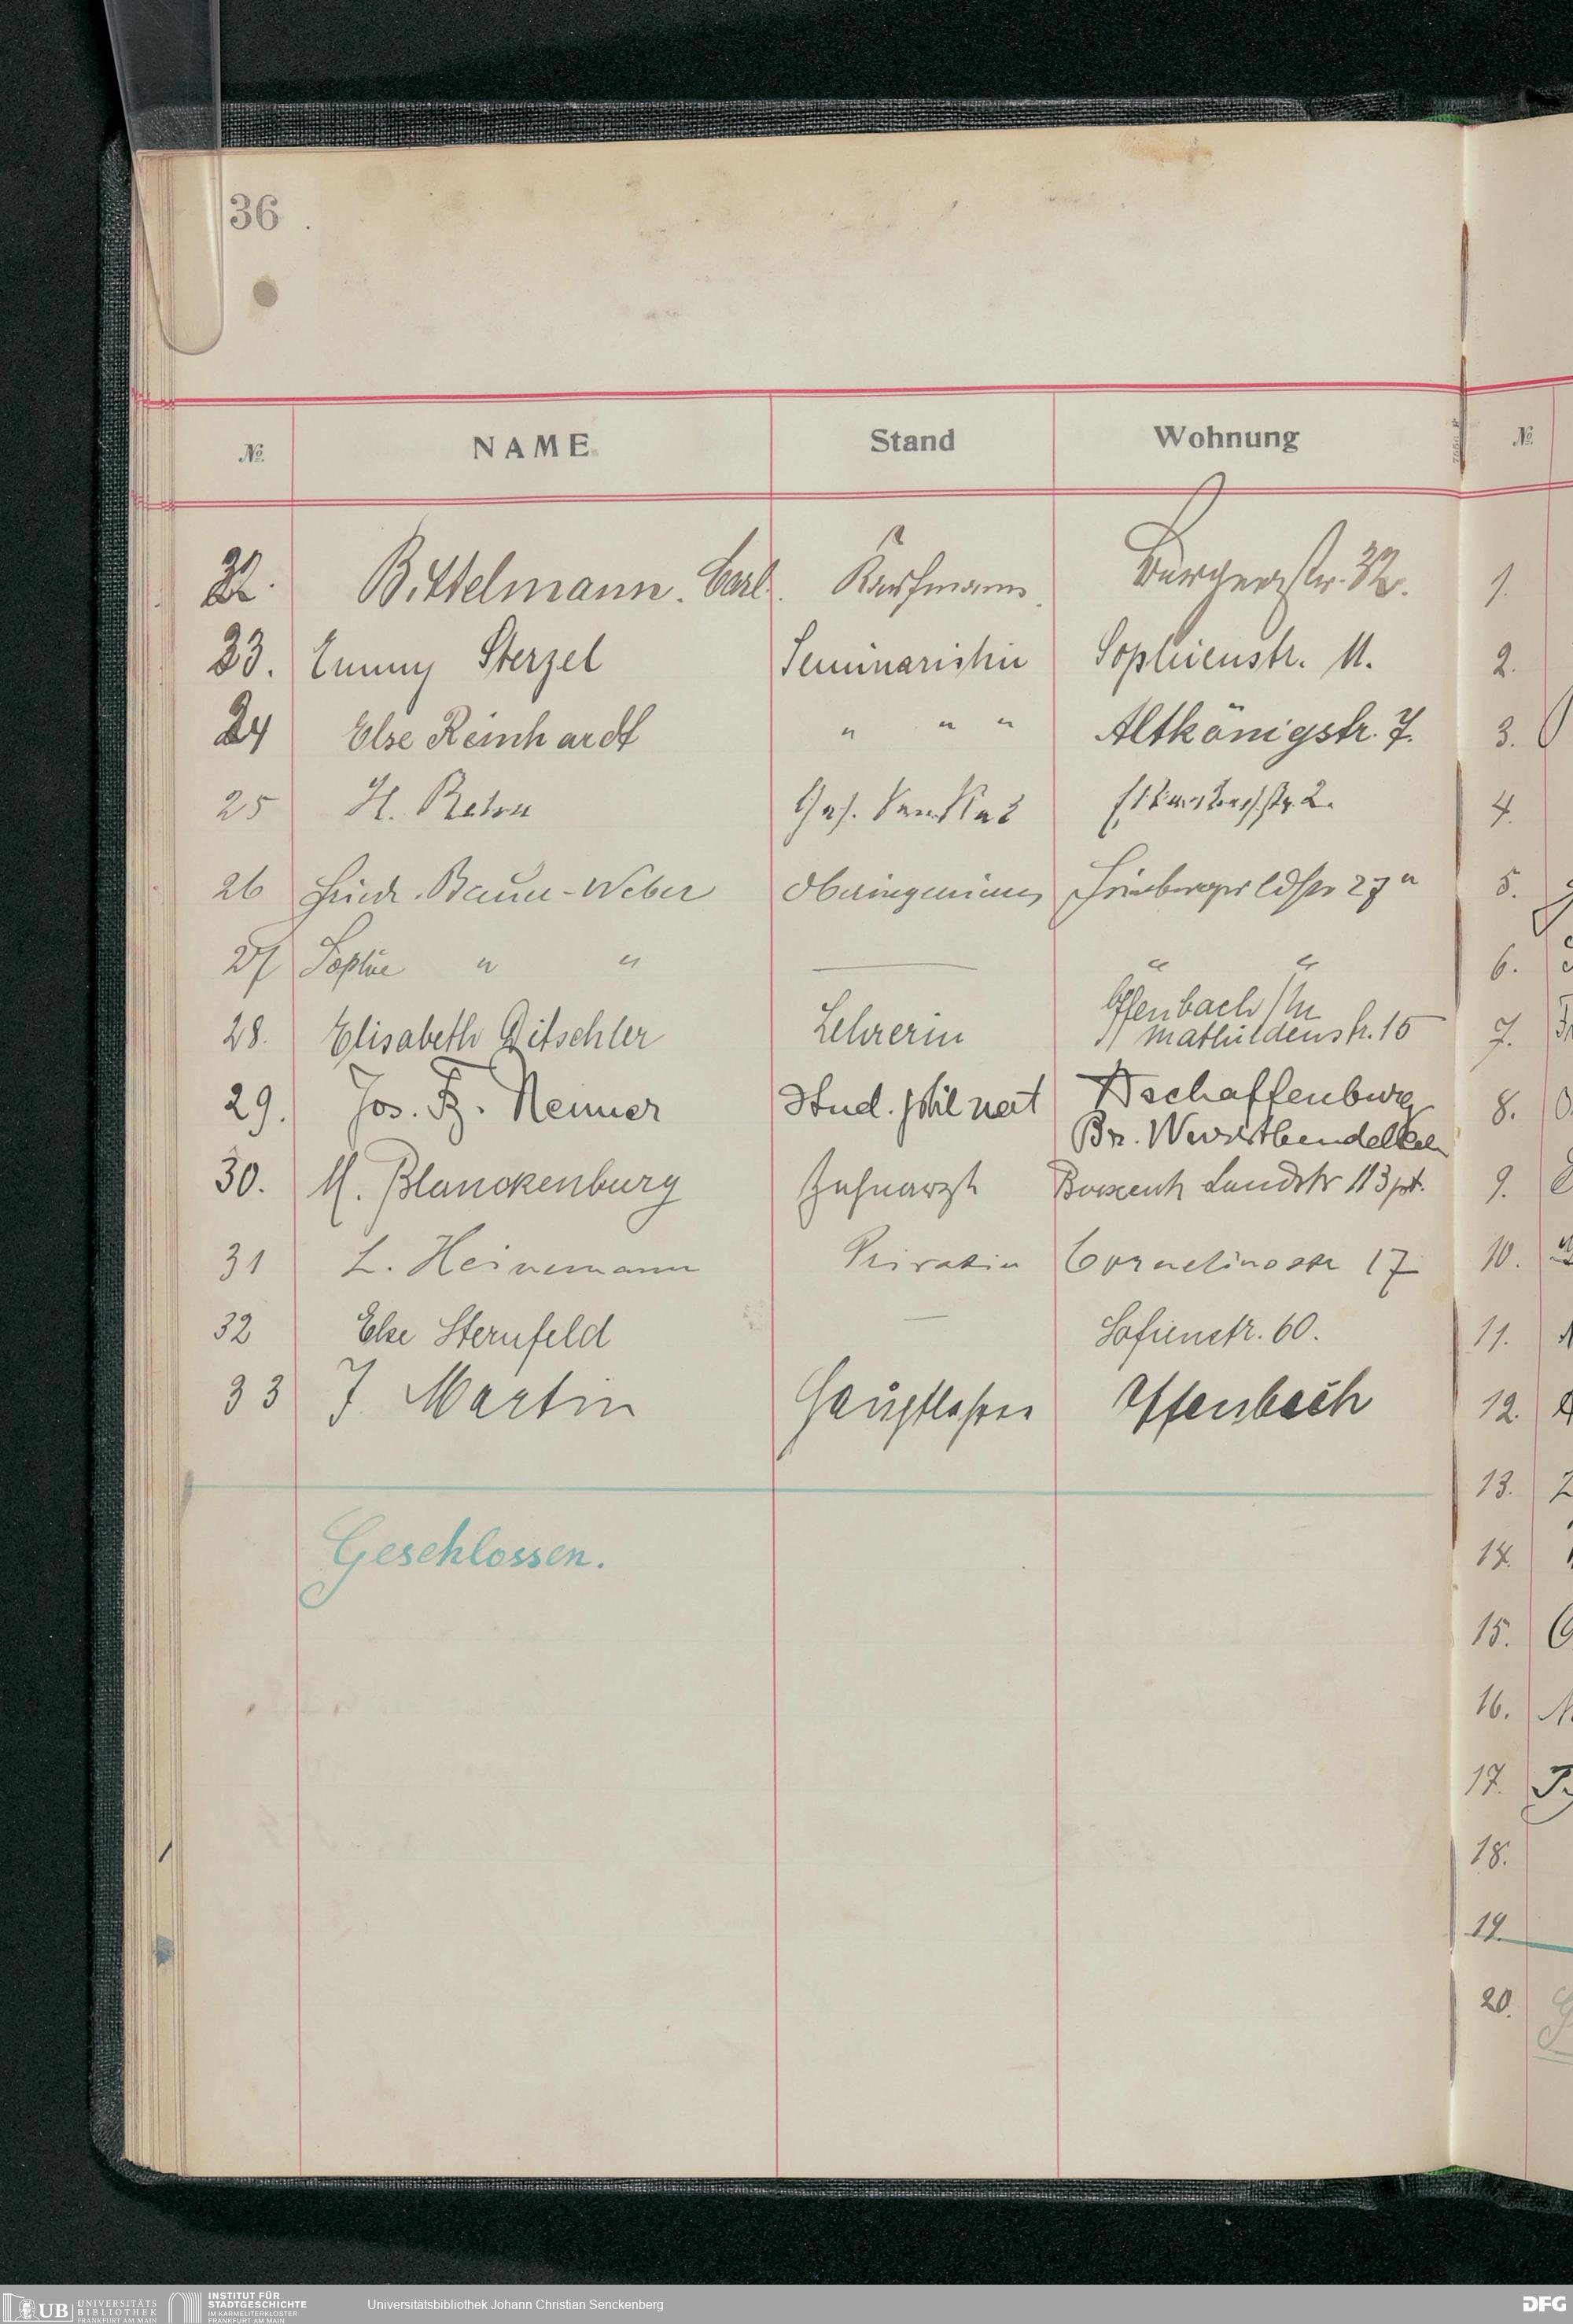 36
№ NAME Stand Wohnung №
22. Bittelmann. Carl. Kaufmann Burgerstr. 32. 1.
23. Emmy Sterzel Seminaristin Sophienstr. 11. 2.
24 Else Reinhardt " " " Altkönigstr. 7. 3.
25 H. 2. 4.
26 Friedr. Baum-Weber Oberingenieur 27a 5.
27 Sophie " " — " " 6.
28. Elisabeth Ditschler Lehrerin Offenbach /M 7.
Mathildenstr. 15
29. Jos. Fz. Stud. phil nat Aschaffenburg 8.
Br.
30. M. Blanckenburg Zahnarzt Landstr 113 pt. 9.
31 L. Heinemann Privatin Corneliusstr 17 10.
32 Else Sternfeld — Sofienstr. 60. 11.
33 J. Martin Hauptlehrer Offenbach 12.
13.
Geschlossen.
14.
15.
16.
17.
18.
19.
20.
UB UNIVERSITÄTS
BIBLIOTHEK
FRANKFURT AM MAIN
INSTITUT FÜR
STADTGESCHICHTE
IM KARMELITERKLOSTER
FRANKFURT AM MAIN
Universitätsbibliothek Johann Christian Senckenberg
DFG